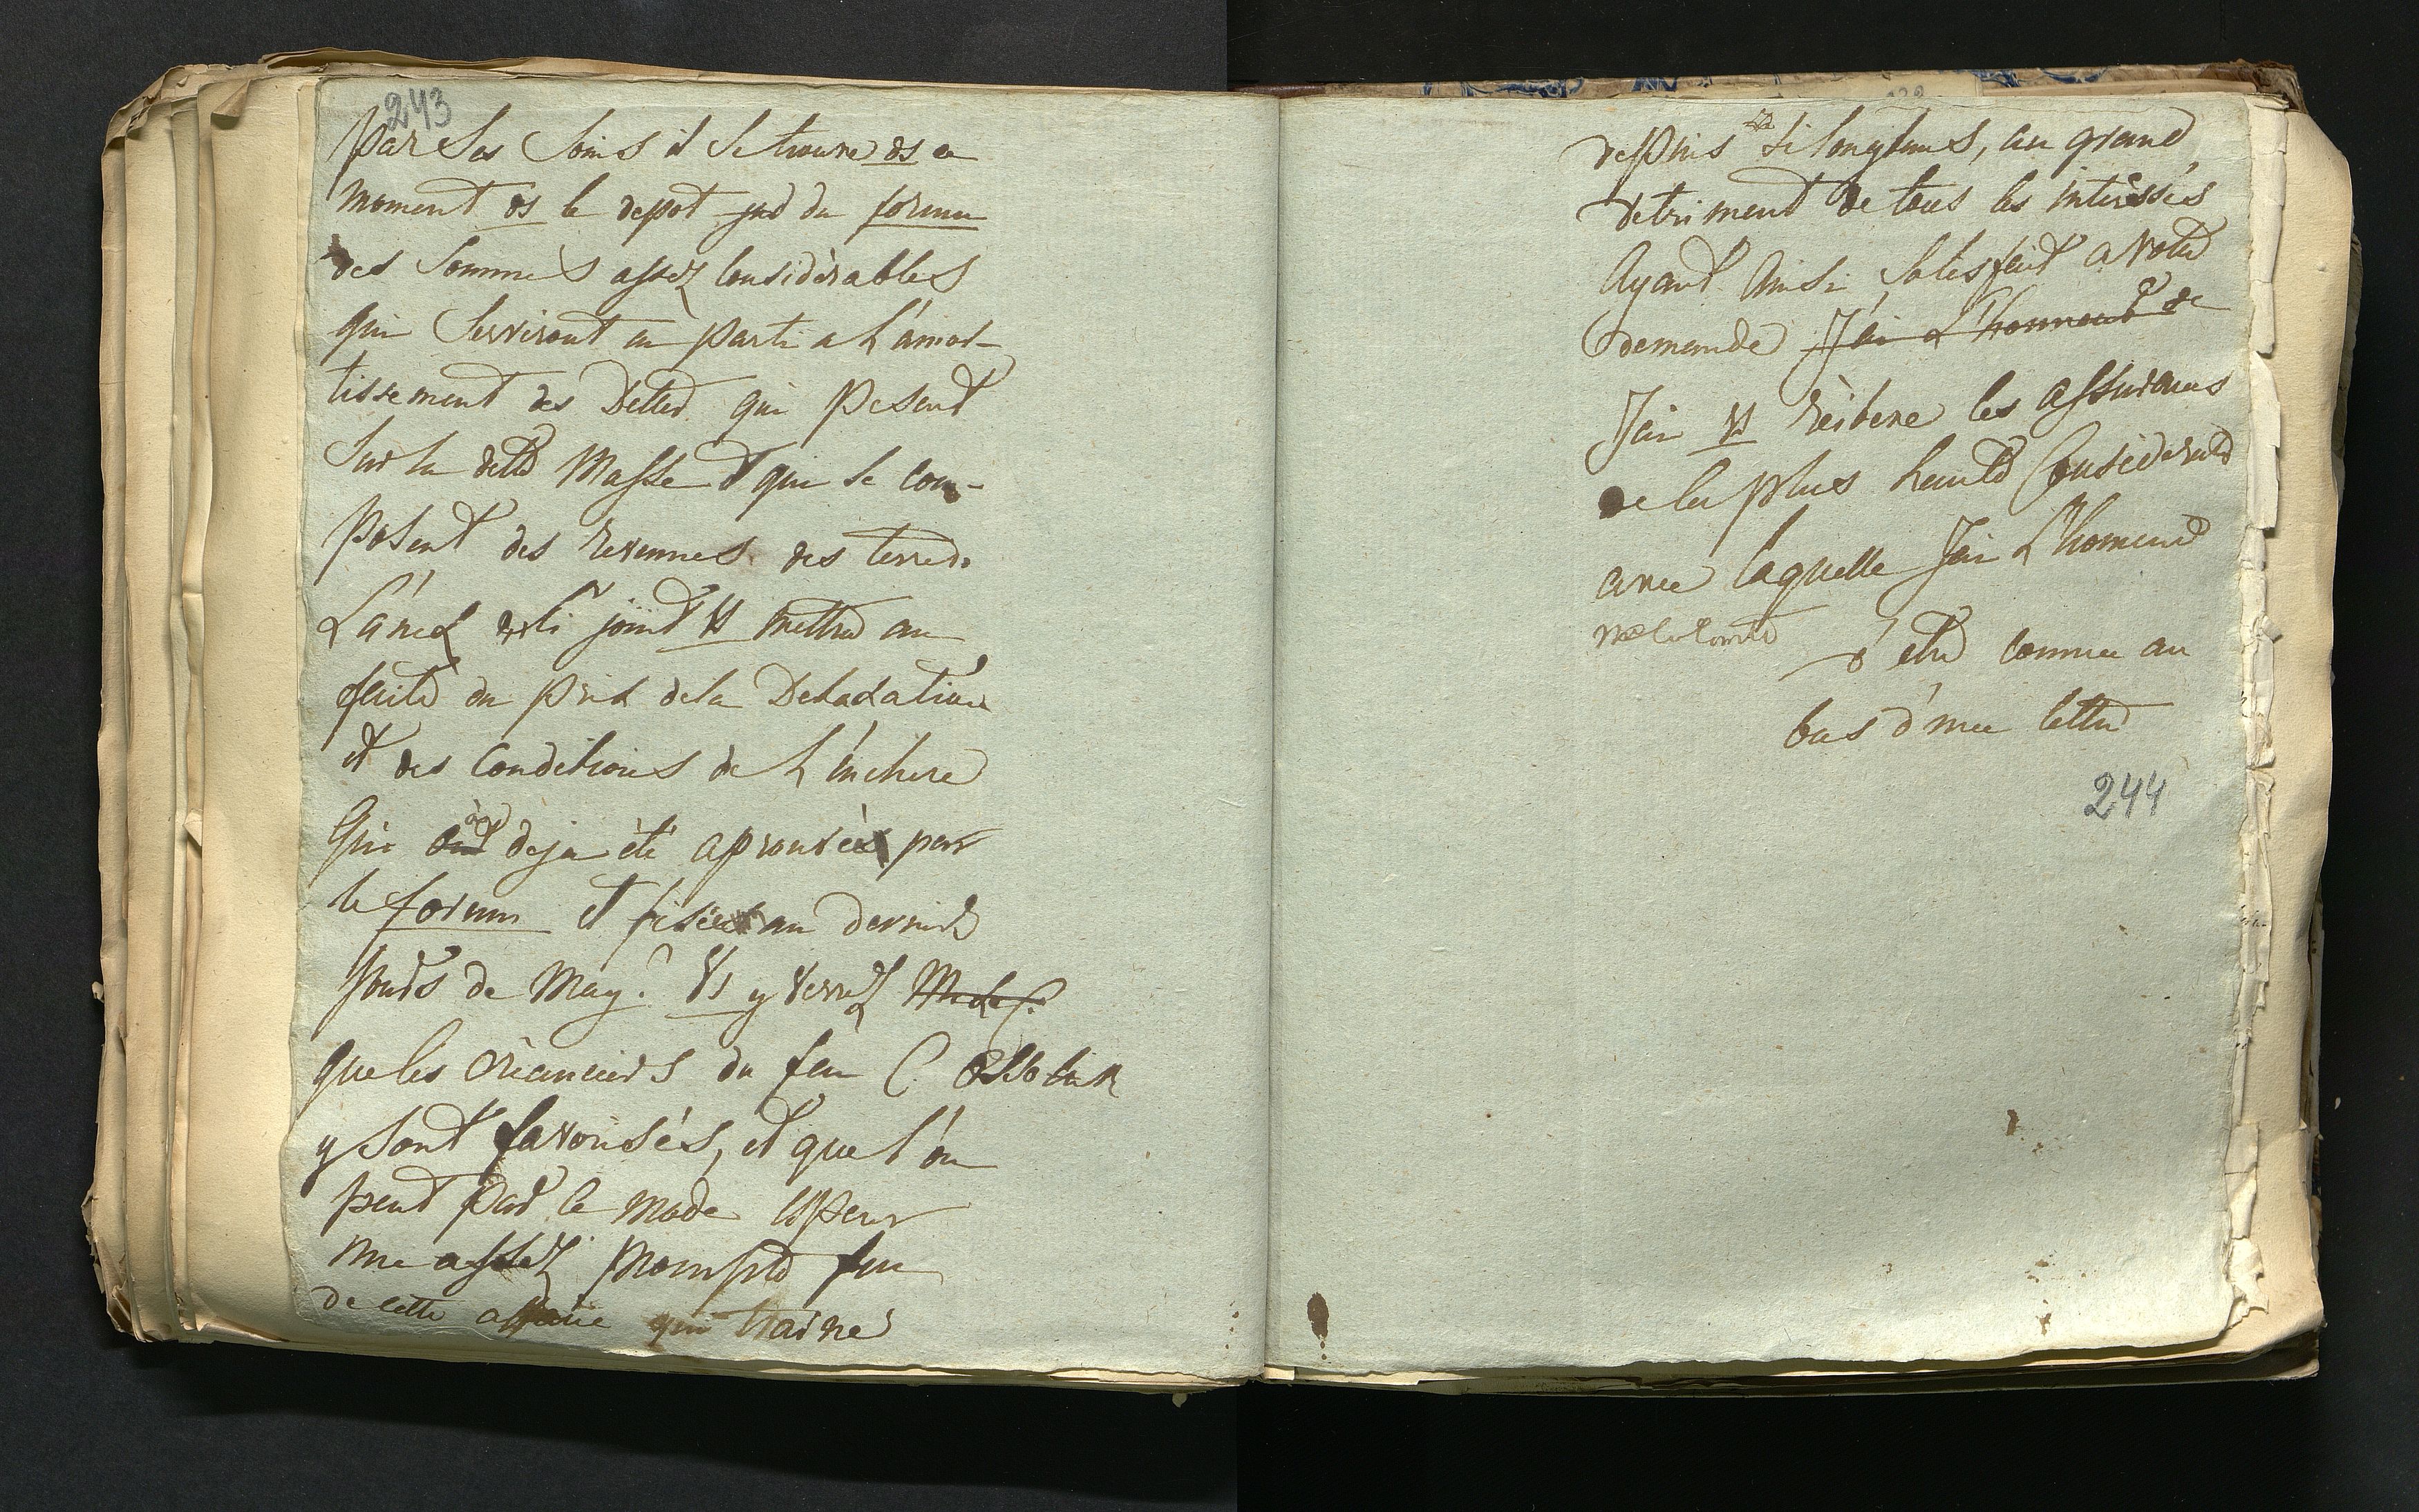 243
par ses soins il se trouve ds ce
moment ds le depot jud du forum
des sommes assez considèrables
qui serviront en parti a L'amor-
tissement des Dettes qui pesent
sur la dette Masse et qui se com-
posent des revennes des terres.
L'anex ci joint Vs mettra au
faite du prix de la Detaxation
et des conditions de L'enchere
Qui ont deja èté aprouvèe par
le forum et fixée au dernier
jours de May. Vs y verrez M. le C.
que les crèanciers du feu C. Ossolin
y sont favorisés, et que l'on
peut par ce mode esperer
une assez prompte fin
de cette affaire qui traine
depuis si longtems, au grand
detriment de tous les intèressès
Ayant ainsi satisfait a votre
demande J'ai L'honneur de
J'ai Vs rèitere les assurances
de la plus haute Consideration
avec laquelle J'ai L'honneur
Mr le Comte
d'etre comme au
bas d'une lettre
244